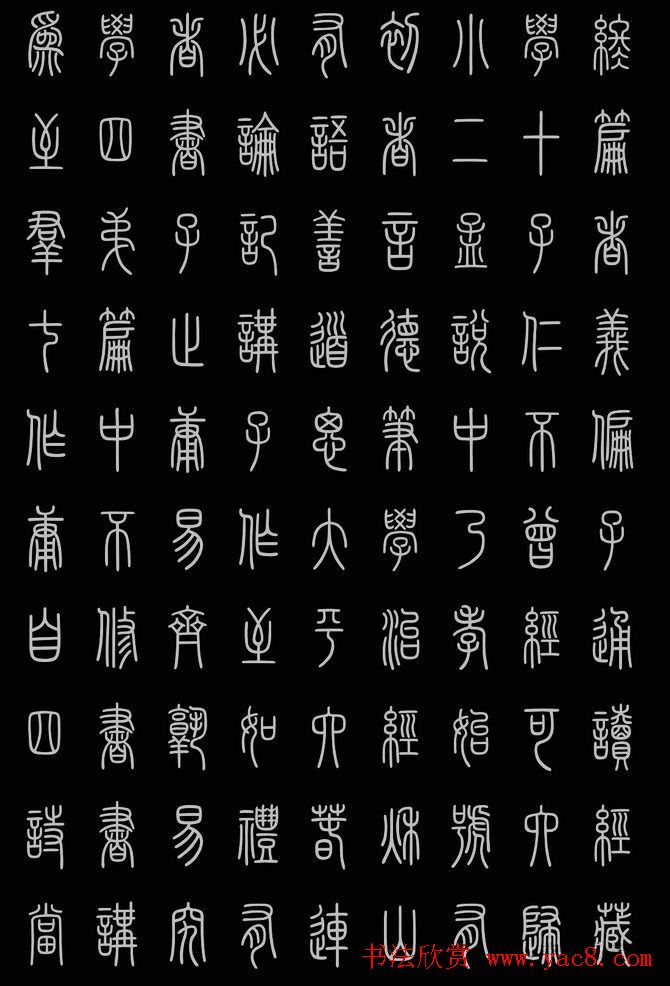 為學者必有初小學終
至四書論語者二十篇
羣弟子記善言孟子者
七篇止講道德說仁義
作中庸子思筆中不偏
庸不易作大學乃曾子
自修齊至平治孝經通
四書孰如六經始可讀
詩書易禮春秋號六經
當講究有連山有歸藏
书法欣赏 www.yac8.com